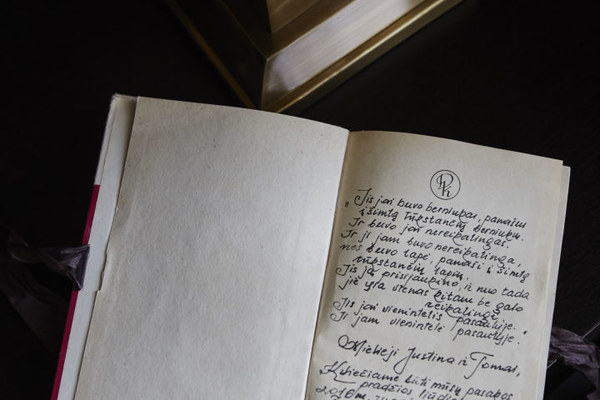 „Jis jai buvo berniukas, panašus
į šimtą tūkstančių berniukų.
Ir buvo jai nereikalingas.
Ir ji jam buvo nereikalinga,
nes buvo lapė, panaši į šimtą
tūkstančių lapių.
Jis ją prisijaukino, ir nuo tada
jie yra vienas kitam be galo
reikalingi.
Jis jai vienintelis pasaulyje.
Ji jam vienintelė pasaulyje."
Mielieji Justina ir Tomai,
Kviečiame būti mūsų pasakos
pradžios liudi
2016 m.